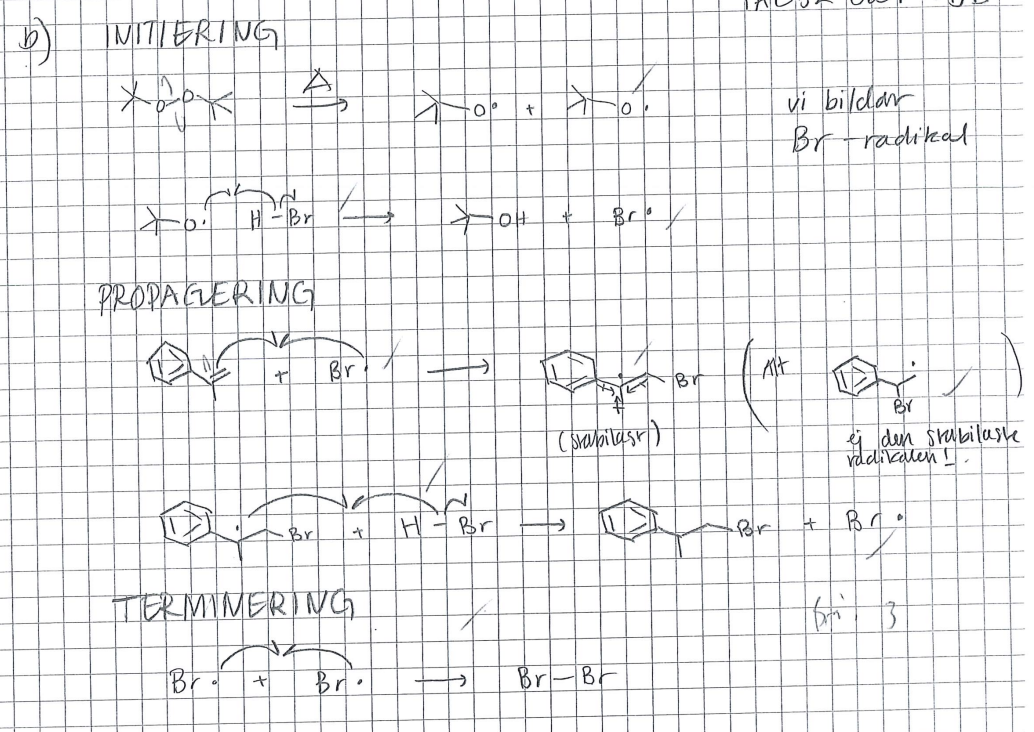 b) INITIERING
O O Δ O• + O•
vi bildar
Br-radikal
O• H-Br → OH + Br•
PROPAGERING
+ Br• → Br (Alt Br)
(stabilast) ej den stabilaste
radikalen!
Br + H-Br → Br + Br•
TERMINERING
3
Br• + Br• → Br-Br